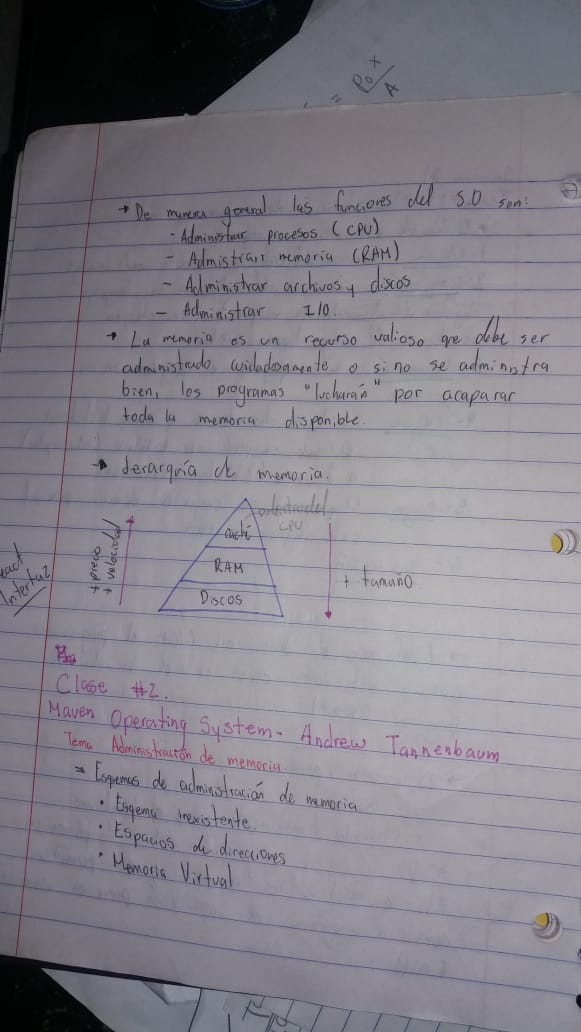 = Po x/A
→ De manera general las funciones del S.O son:
- Administrar procesos (CPU)
- Admistrar memoria (RAM)
- Administrar archivos y discos
- Administrar I/O.
→ La memoria es un recurso valioso que debe ser
administrado cuidadosamente o si no se administra
bien, los programas "lucharán" por acaparar
toda la memoria disponible.
→ Jerarquía de memoria.
dentro del
CPU
caché
RAM
Discos
+ precio
+ velocidad
+ tamaño
Interfaz
Clase #2.
Maven Operating System - Andrew Tannenbaum
Tema Administración de memoria
→ Esquemas de administración de memoria
• Esqema inexistente
• Espacios de direcciones
• Memoria Virtual